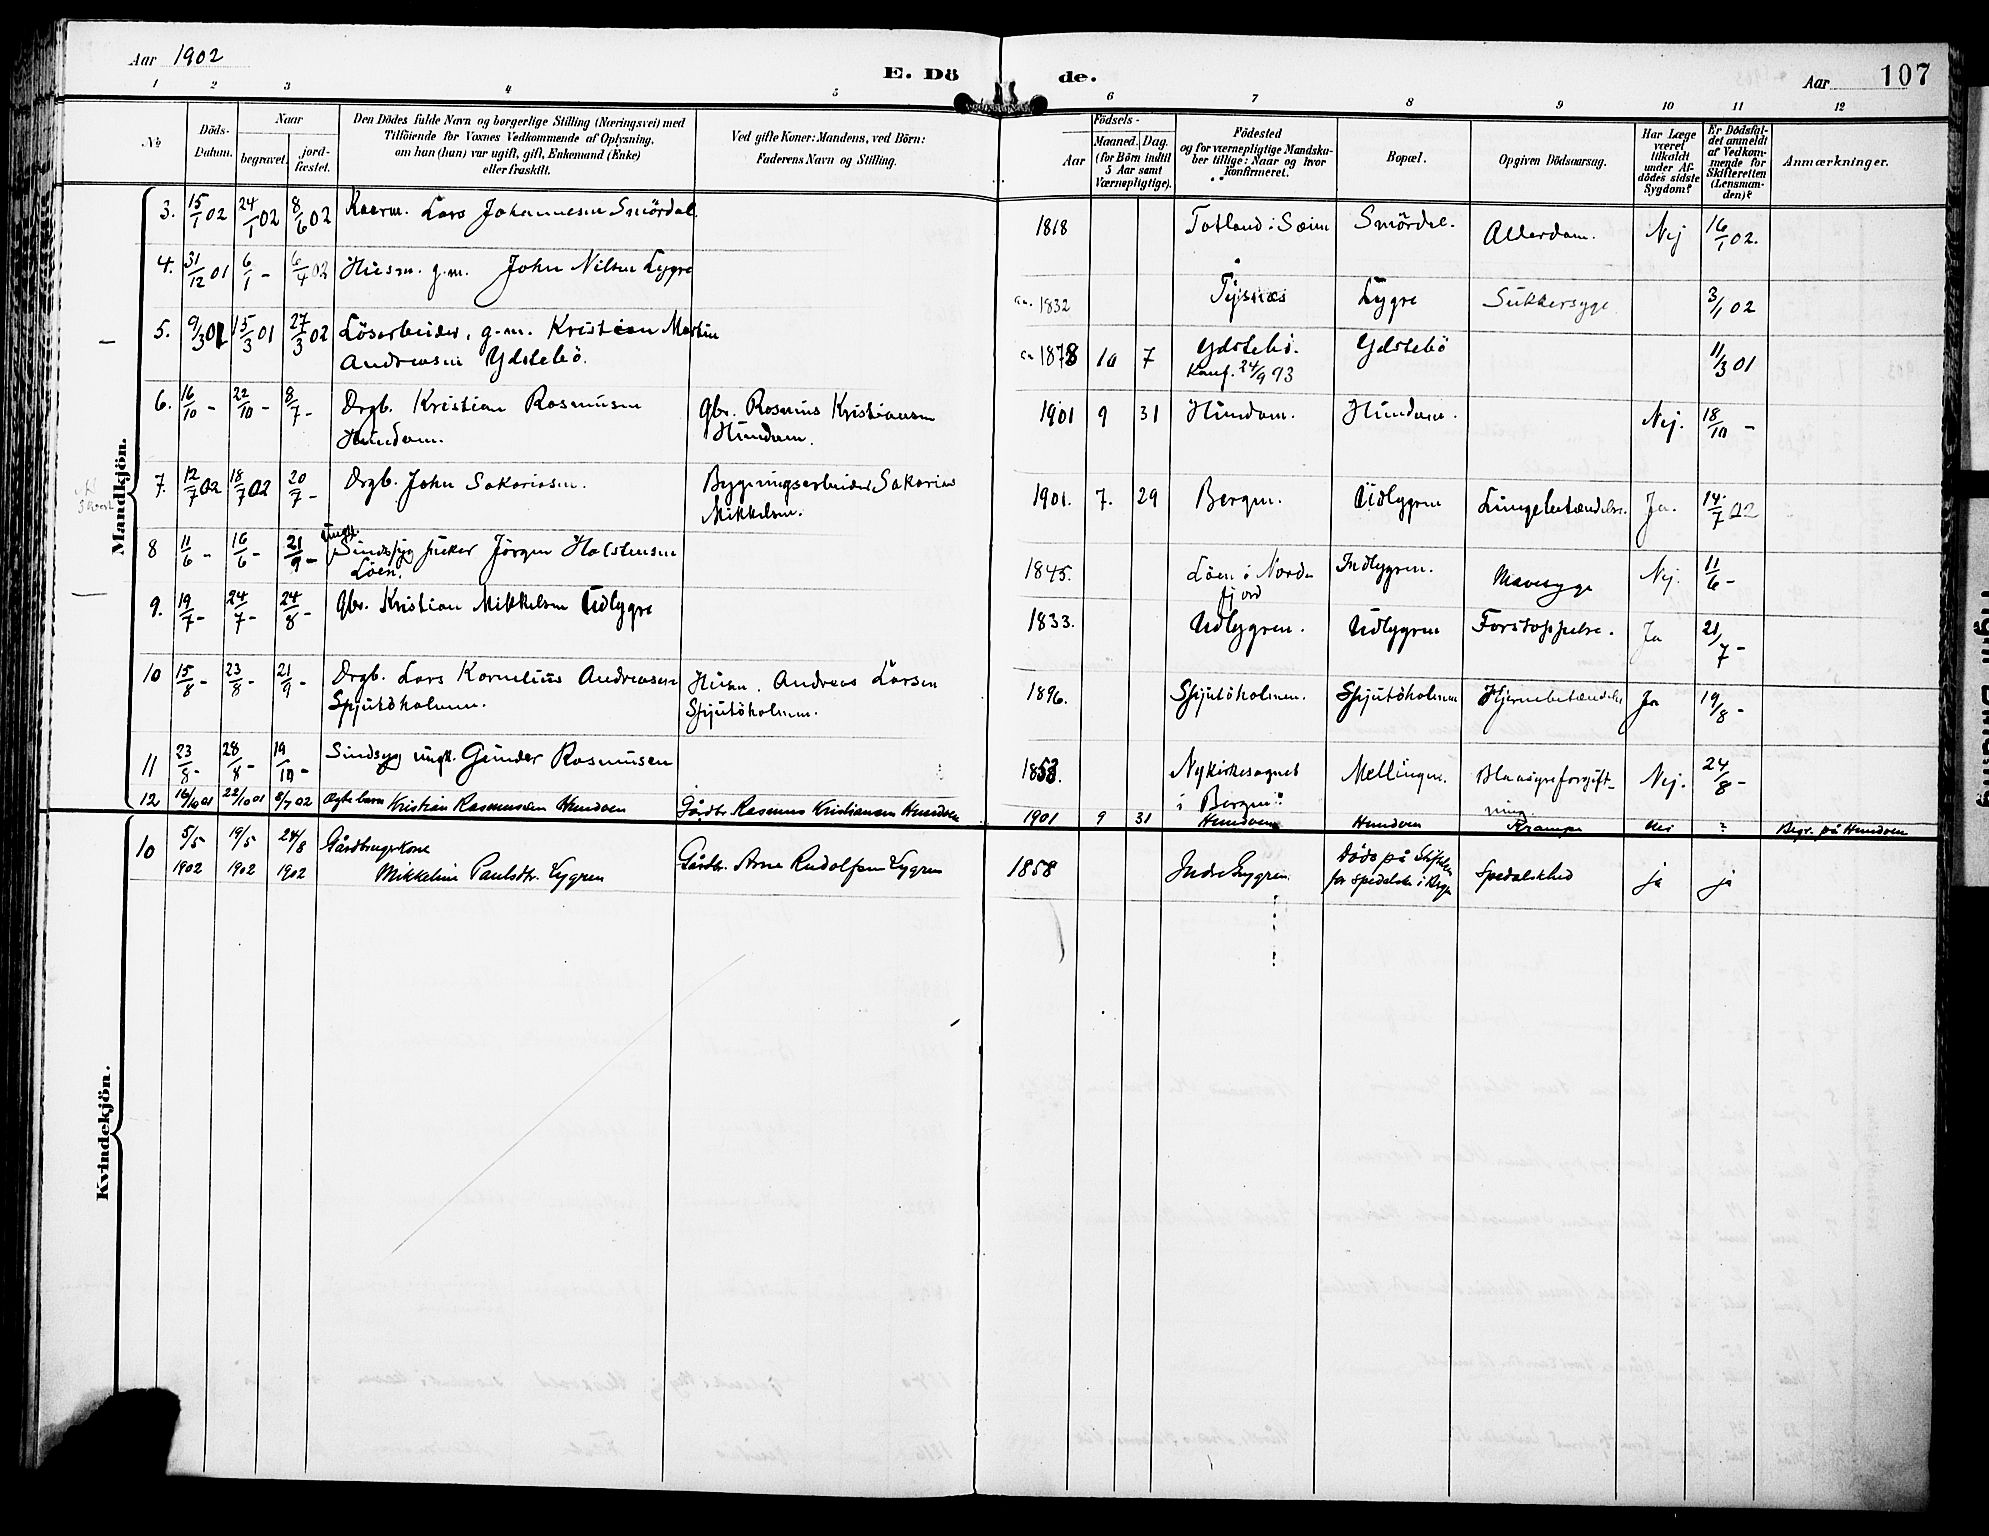 Aar 1902
E. Dö de.
Aar 107
1 2 3 4 5 6 7 8 9 10 11 12
№
Döds-
Datum.
Naar
begravet.
jord-
fæstet.
Den Dödes fulde Navn og borgerlige Stilling (Næringsvei) med
Tilföiende for Voxnes Vedkommende af Oplysning,
om han (hun) var ugift, gift, Enkemand (Enke)
eller fraskilt.
Ved gifte Koner: Mandens, ved Börn:
Faderens Navn og Stilling.
Födsels-
Aar
Maaned. Dag.
(for Börn indtil
5 Aar samt
Værnepligtige).
Födested
og for værnepligtige Mandska-
ber tillige: Naar og hvor
konfirmeret.
Bopæl.
Opgiven Dödsaarsag.
Har Læge
været
tilkaldt
under Af-
dödes sidste
Sygdom?
Er Dödsfal-
det anmeldt
af Vedkom-
mende for
Skifteretten
(Lensman-
den)?
Anmærkninger.
Mandkjön.
3. 15/1 02 24/1 02 8/6 02 Kaarm. Lars Johannesen Smördal. 1818 Totland i Sæim Smördal. Alderdom. Nej 16/1 02.
4. 31/12 01 6/1 - 6/4 02 Husm. g.m. John Nilsen Lygre ca. 1832 Tysnæs Lygre Sukkersyge 3/1 02
5. 9/3 01 15/3 01 27/3 02 Lösarbeider, g.m. Kristian Martin
Andreasen Ydstebö. ca 1878 10 7 Ydstebö. Ydstebö 11/3 01
Konf. 24/9 93
6. 16/10 - 22/10 - 8/7 - Ægb. Kristian Rasmusen
Hundom. Gbr. Rasmus Kristiansen
Hundom. 1901 9 31 Hundom. Hundom. Nej. 18/10 -
7. 12/7 02 18/7 02 20/7 - Ægb. John Sakariasen. Bygningsarbeider Sakarias
Mikkelsen. 1901. 7. 29 Bergen. Udlygren Lungebetændelse. Ja. 14/7 02
8 11/6 - 16/6 - 21/9 - ungk.
Sindssyg Jörgen Holstensen
Löen. 1845. Löen i Nord-
fjord Indlygren. Mavesyge Nej. 11/6 -
9. 19/7 - 24/7 - 24/8 - Gbr. Kristian Mikkelsen Udlygre 1833. Udlygren. Udlygren Forstoppelse. Ja 21/7 -
10 15/8 - 23/8 - 21/9 - Ægb. Lars Kornelius Andreasen
Spjutöholmen. Husm. Andreas Larsen
Spjutöholmen. 1896. Spjutöholmen. Spjutöholmen Hjernebetændelse Ja 19/8 -
11 23/8 - 28/8 - 19/10 - Sindsyg ungk. Gunder Rasmusen 1853. Nykirkesognet
i Bergen. Mellingen. Blaasyreforgift-
ning Nej. 24/8 -
12 16/10 01 22/10 01 8/7 02 Ægte barn Kristian Rasmussen Hundven Gårdbr. Rasmus Kristiansen Hundven 1901 9 31 Hundven Hundven Krampe nei ? Begr. på Hundven
Kvindekjön.
10 5/5 1902 19/5 1902 24/8 1902 Gårdbrugerkone
Mikkeline Paulsdtr. Lygren Gårdbr. Arne Rudolfsen Lygren 1858 Indre Lygren Döde på Stiftelsen
for spedalske i Bergen Spedalskhed ja ja